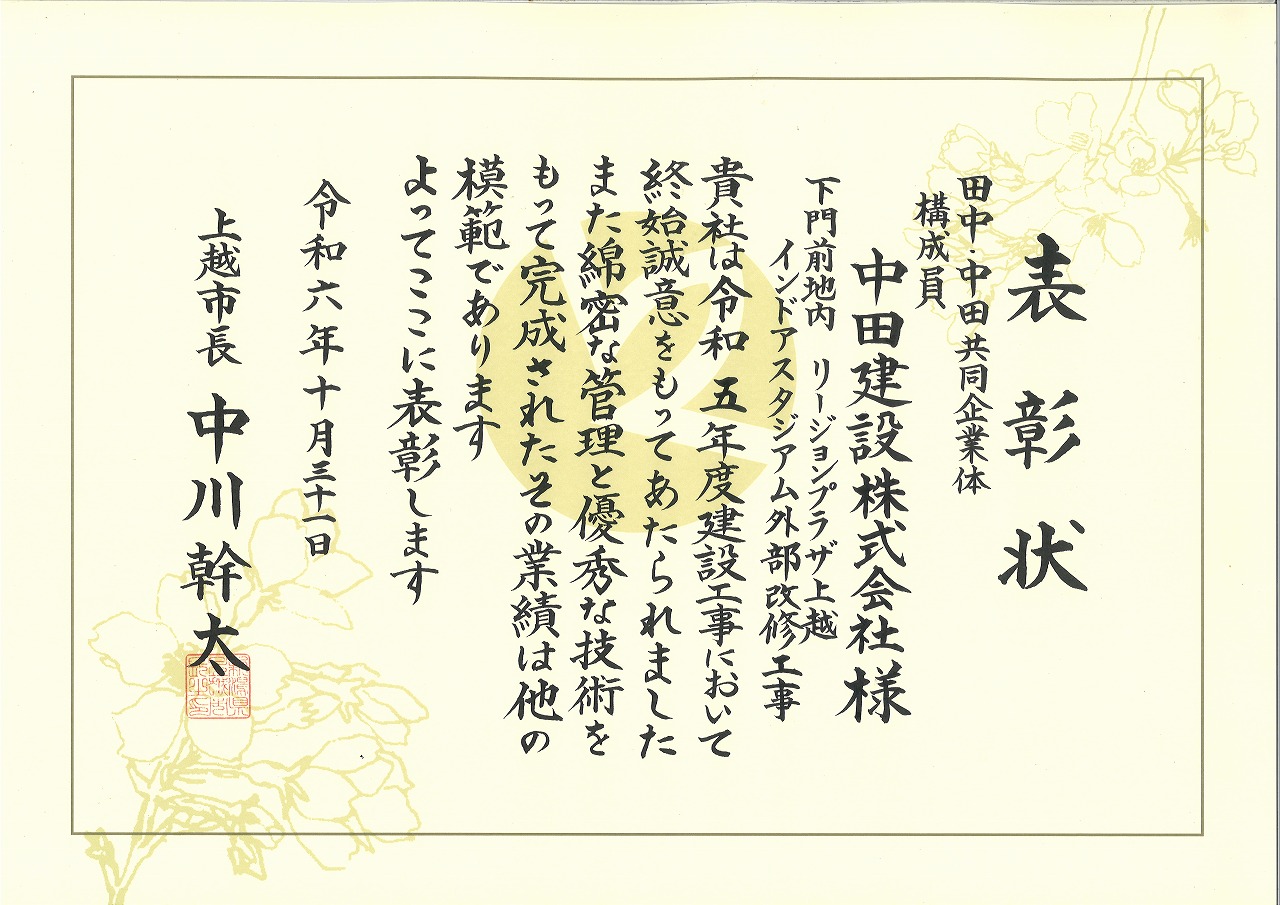 表彰状
田中・中田共同企業体
構成員
中田建設株式会社様
下門前地内 リージョンプラザ上越
インドアスタジアム外部改修工事
貴社は令和五年度建設工事において
終始誠意をもってあたられました
また綿密な管理と優秀な技術を
もって完成されたその業績は他の
模範であります
よってここに表彰します
令和六年十月三十一日
上越市長 中川幹太